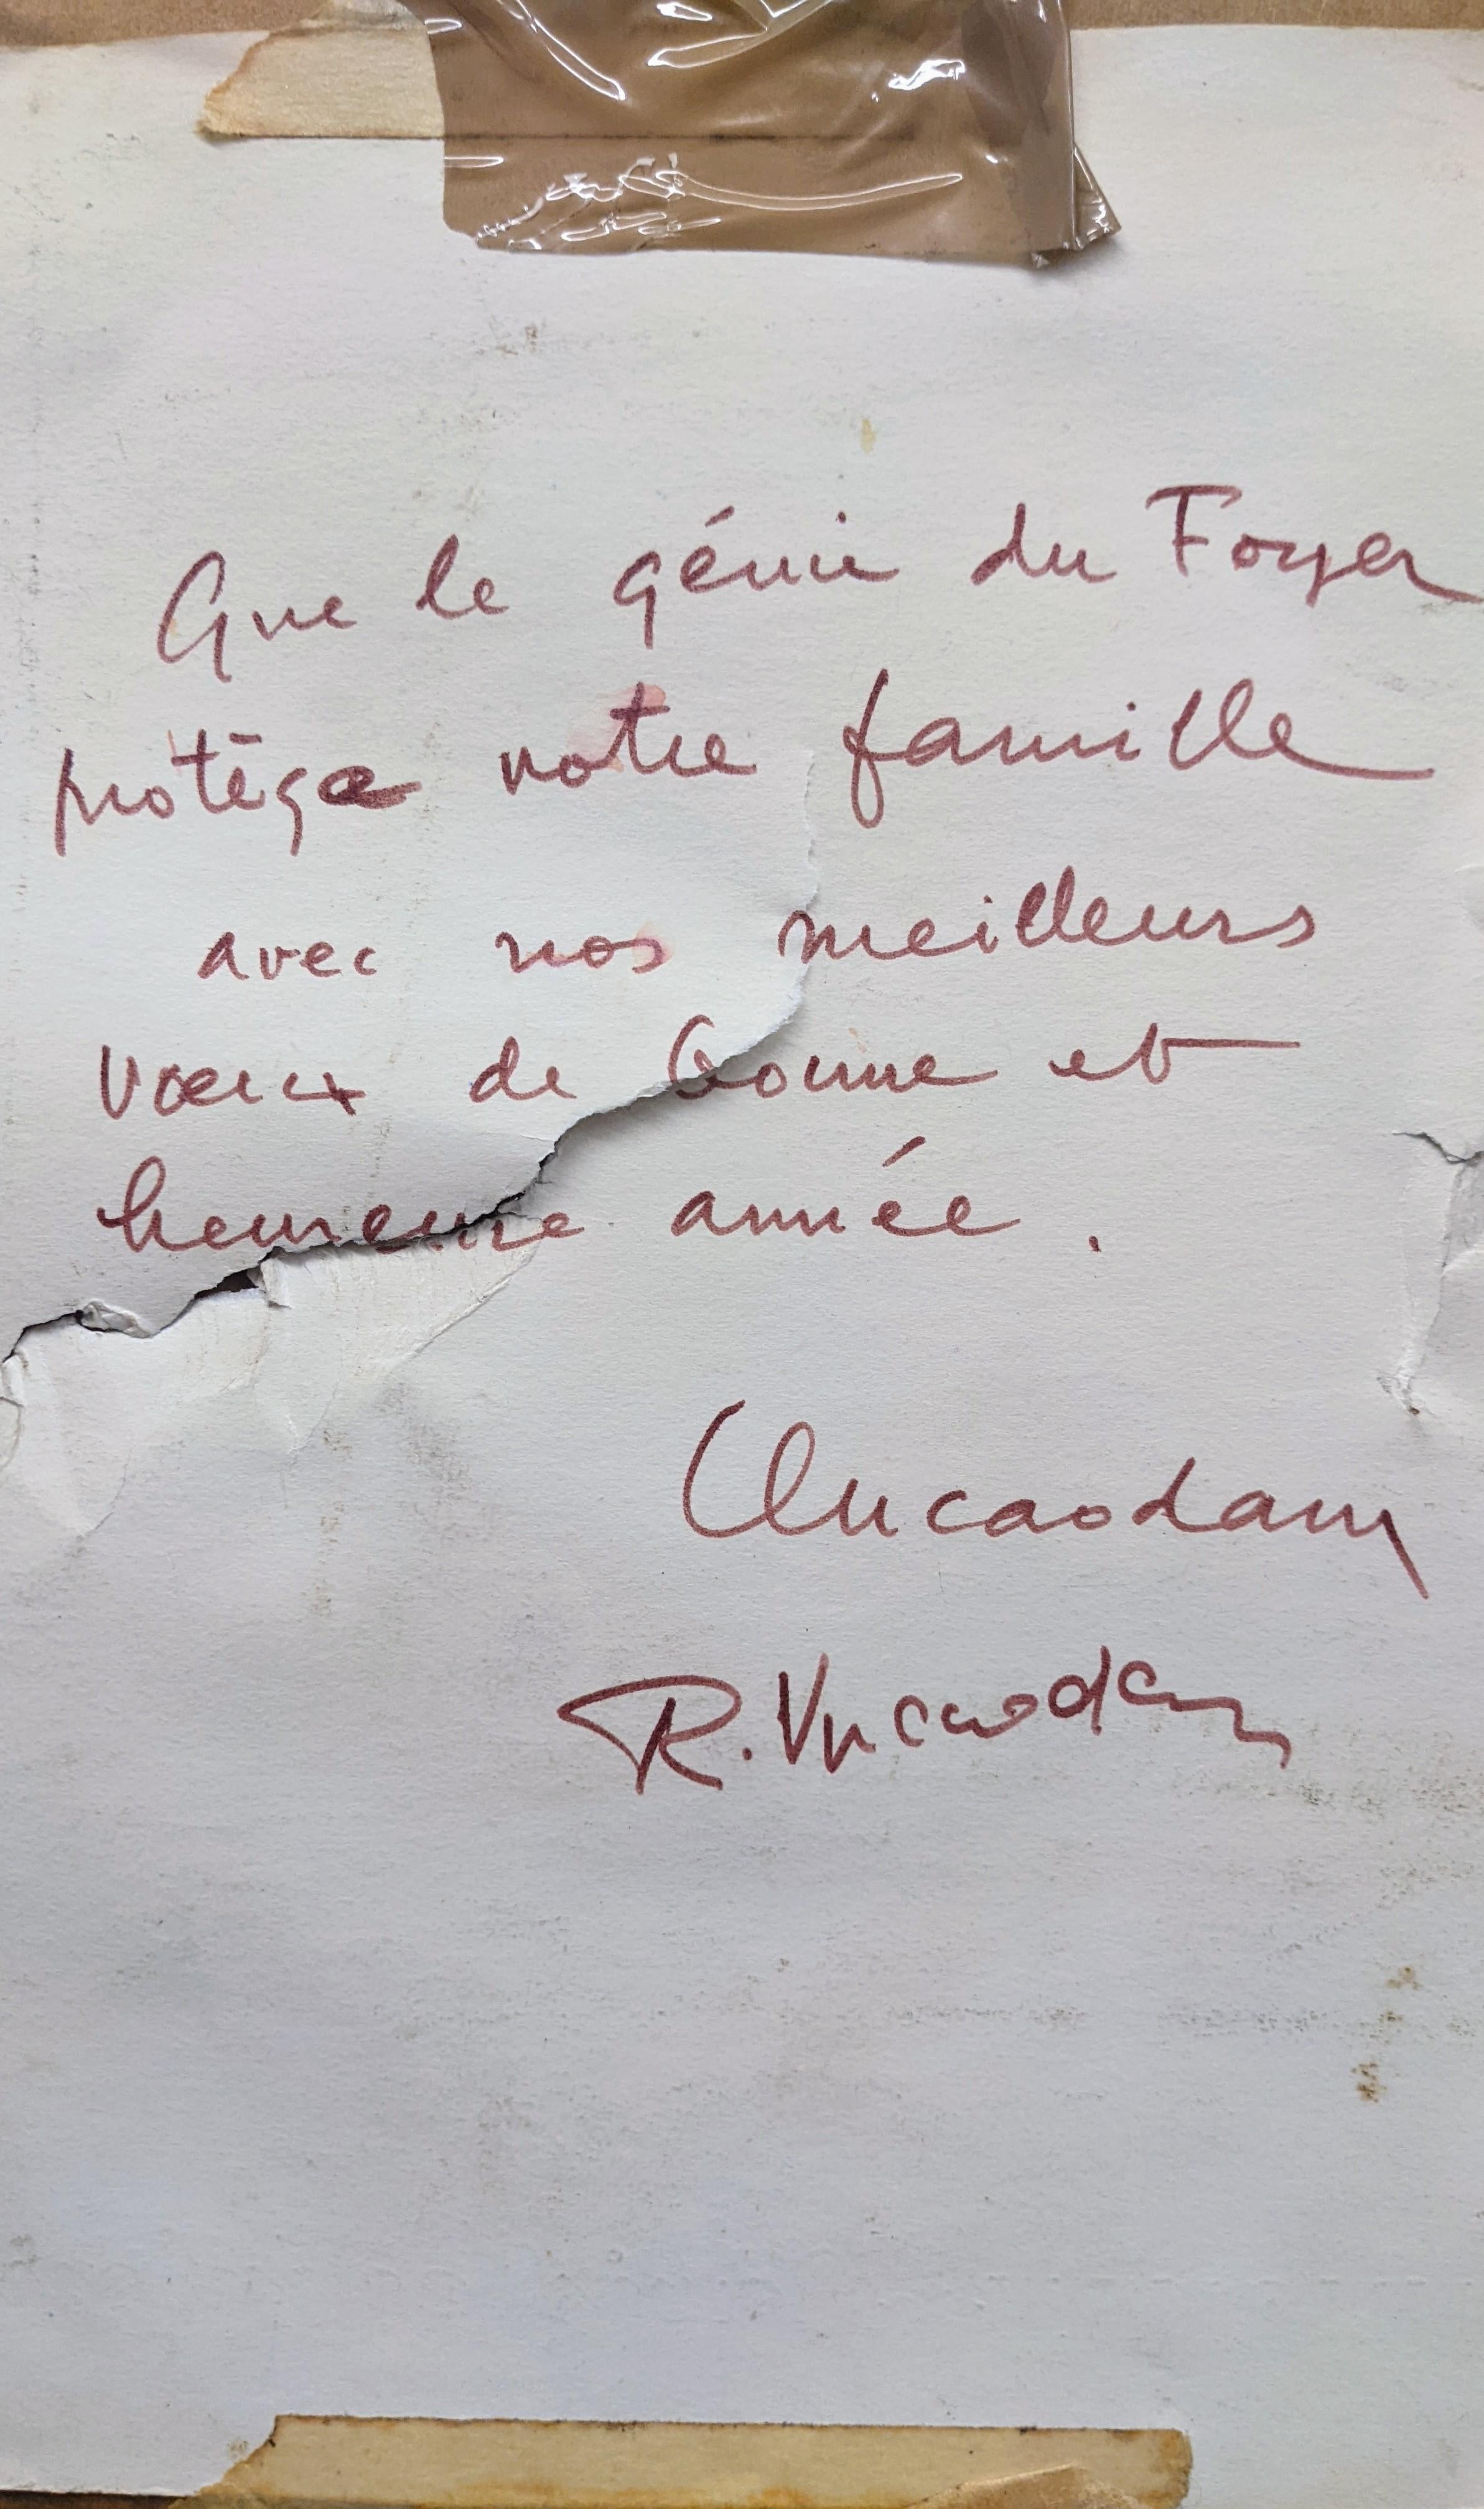 Que le génie du Foyer
protège votre famille
avec nos meilleurs
vœux de bonne et
heureuse année.
Vucaodam
R. Vucaodam